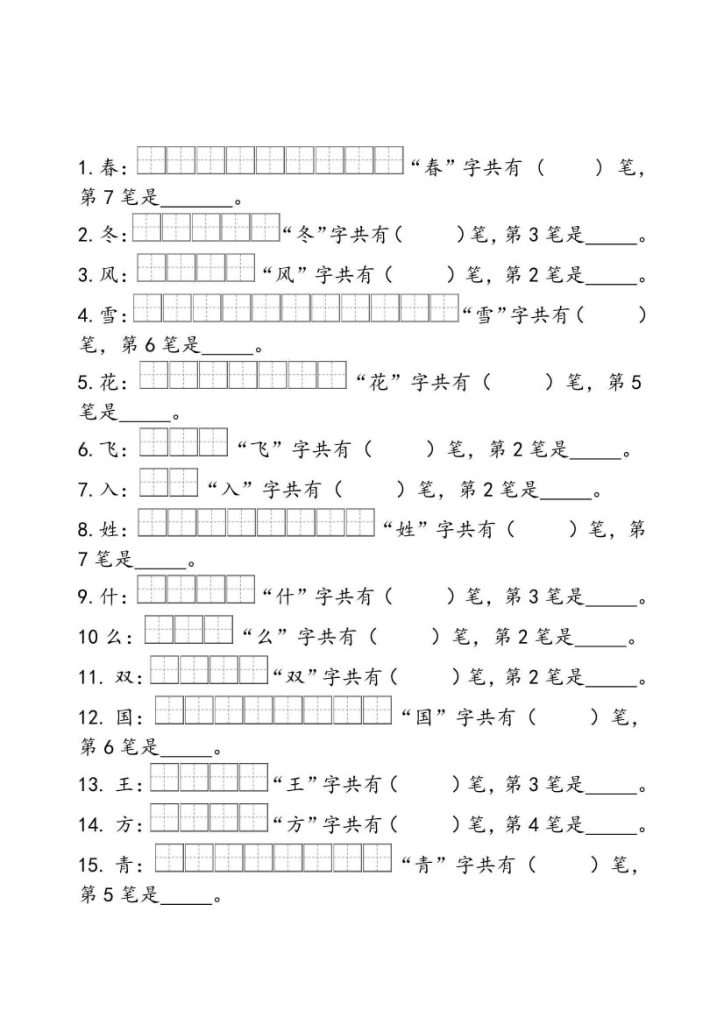 1.春: “春”字共有（ ）笔，
第7笔是_______。
2.冬: “冬”字共有（ ）笔，第3笔是_____。
3.风: “风”字共有（ ）笔，第2笔是_____。
4.雪: “雪”字共有（ ）
笔，第6笔是_____。
5.花: “花”字共有（ ）笔，第5
笔是_____。
6.飞: “飞”字共有（ ）笔，第2笔是_____。
7.入: “入”字共有（ ）笔，第2笔是_____。
8.姓: “姓”字共有（ ）笔，第
7笔是_____。
9.什: “什”字共有（ ）笔，第3笔是_____。
10么: “么”字共有（ ）笔，第2笔是_____。
11. 双: “双”字共有（ ）笔，第2笔是_____。
12. 国: “国”字共有（ ）笔，
第6笔是_____。
13. 王: “王”字共有（ ）笔，第3笔是_____。
14. 方: “方”字共有（ ）笔，第4笔是_____。
15. 青: “青”字共有（ ）笔，
第5笔是_____。